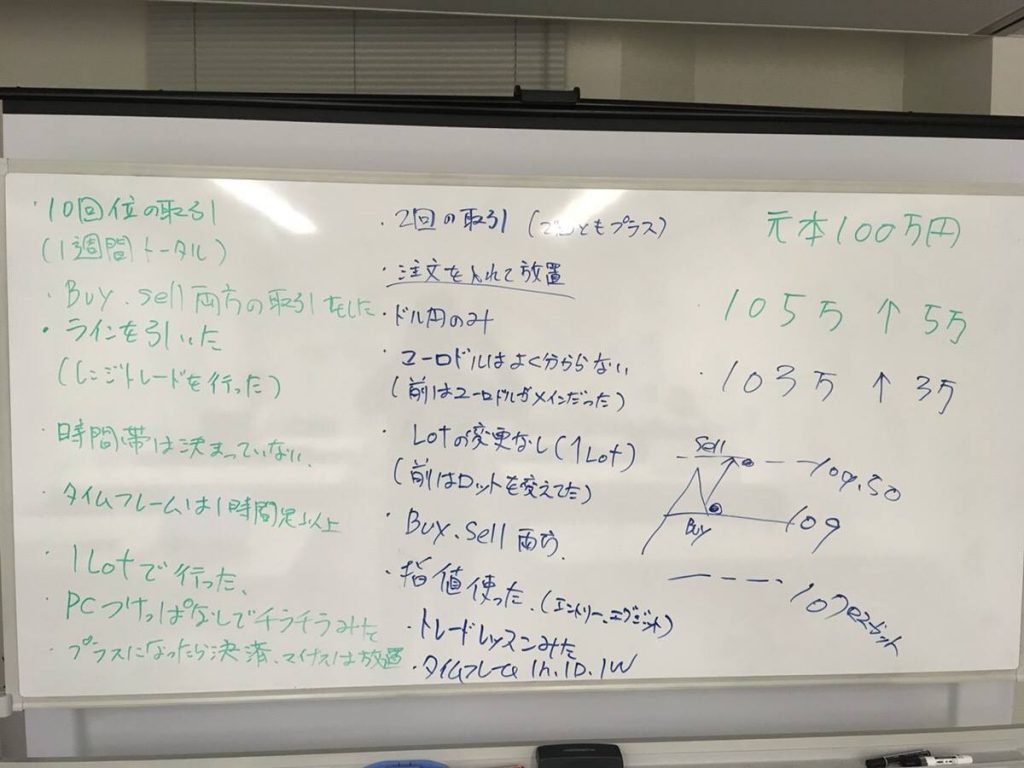 ・10回位の取引
(1週間トータル)
・Buy.sell両方の取引をした
・ラインを引いた
(レンジトレードを行った)
・時間帯は決まっていない、
・タイムフレームは1時間足以上
・1Lotで行った、
・PCつけっぱなしでチラチラみた
・プラスになったら決済、マイナスは放置
・2回の取引 (2回ともプラス)
・注文を入れて放置
・ドル円のみ
・ユーロドルはよく分からない
(前はユーロドルがメインだった)
・Lotの変更なし(1Lot)
(前はロットを変えてた)
・Buy.Sell 両方.
・指値使った.(エントリー、エグジット)
・トレードレッスンみた
・タイムフレーム 1h.1D.1W
元本100万円
・105万 ↑ 5万
・103万 ↑ 3万
Sell
109.50
Buy
109
107